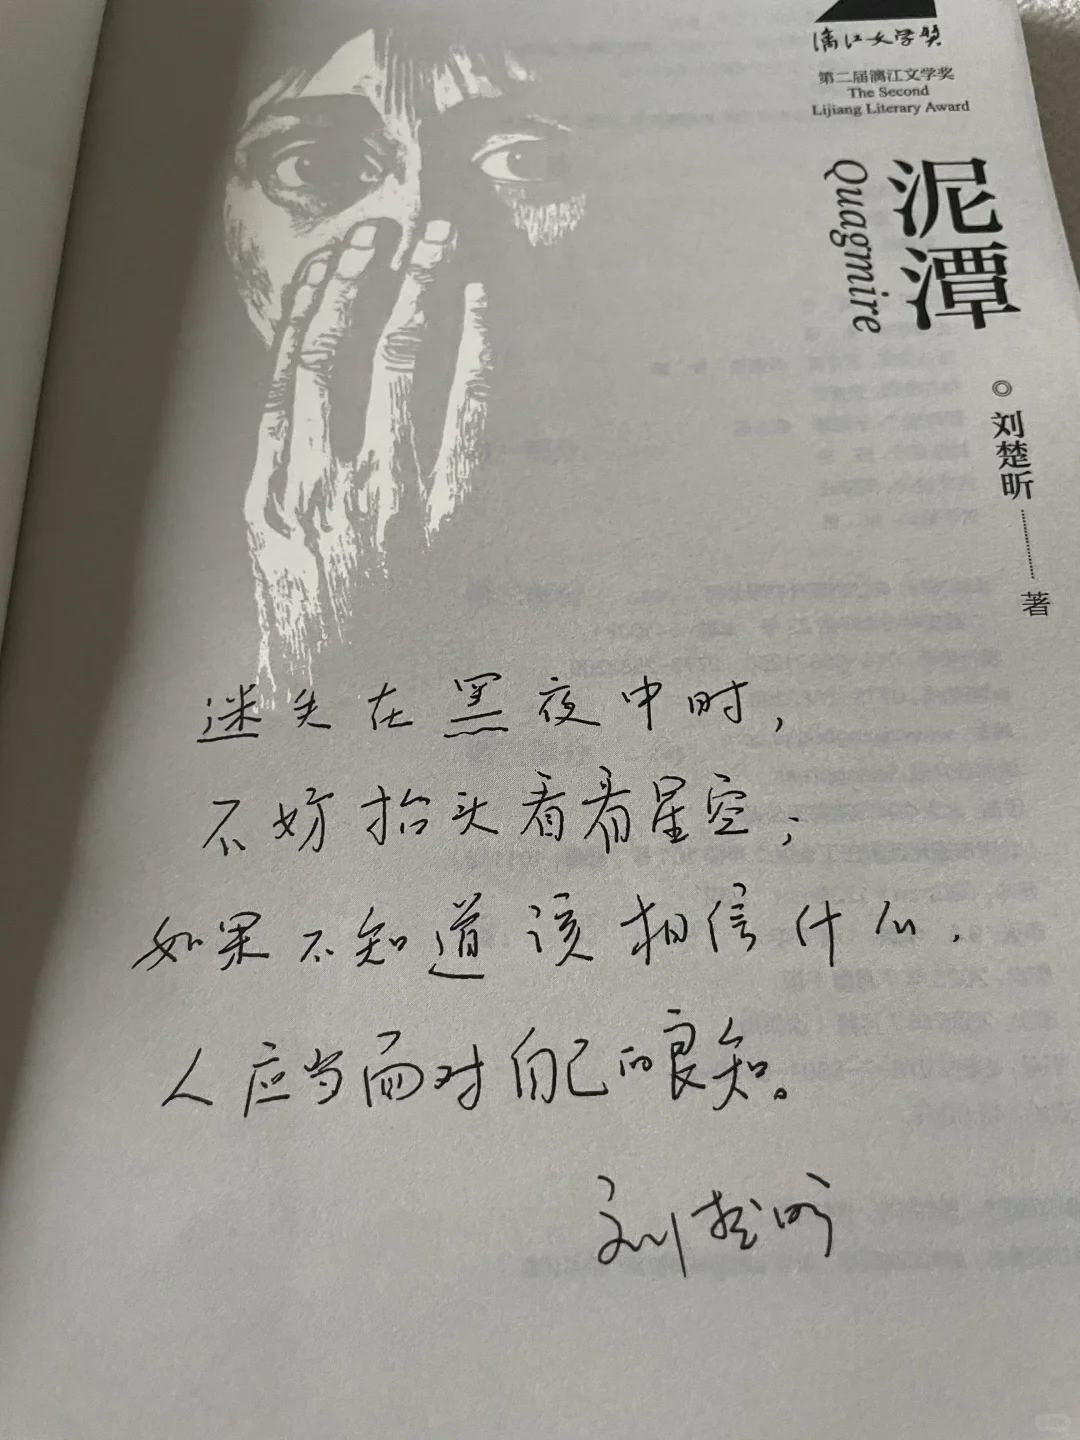 漓江文学奖
第二届漓江文学奖
The Second
Lijiang Literary Award
泥潭
Quagmire
◎刘楚昕
著
迷失在黑夜中时，
不妨抬头看看星空；
如果不知道该相信什么，
人应当面对自己的良知。
刘楚昕